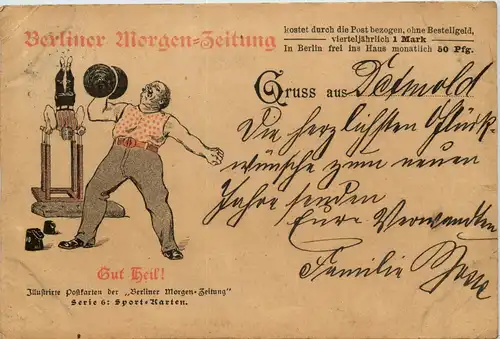 Berliner Morgen=Zeitung
kostet durch die Post bezogen, ohne Bestellgeld,
vierteljährlich 1 Mark
In Berlin frei ins Haus monatlich 50 Pfg.
Gruss aus Detmold
Die herzlichsten Glück-
wünsche zum neuen
Jahre senden
Eure Verwandten
Familie
Gut Heil!
Illustrirte Postkarten der „Berliner Morgen=Zeitung"
Serie 6: Sport=Karten.